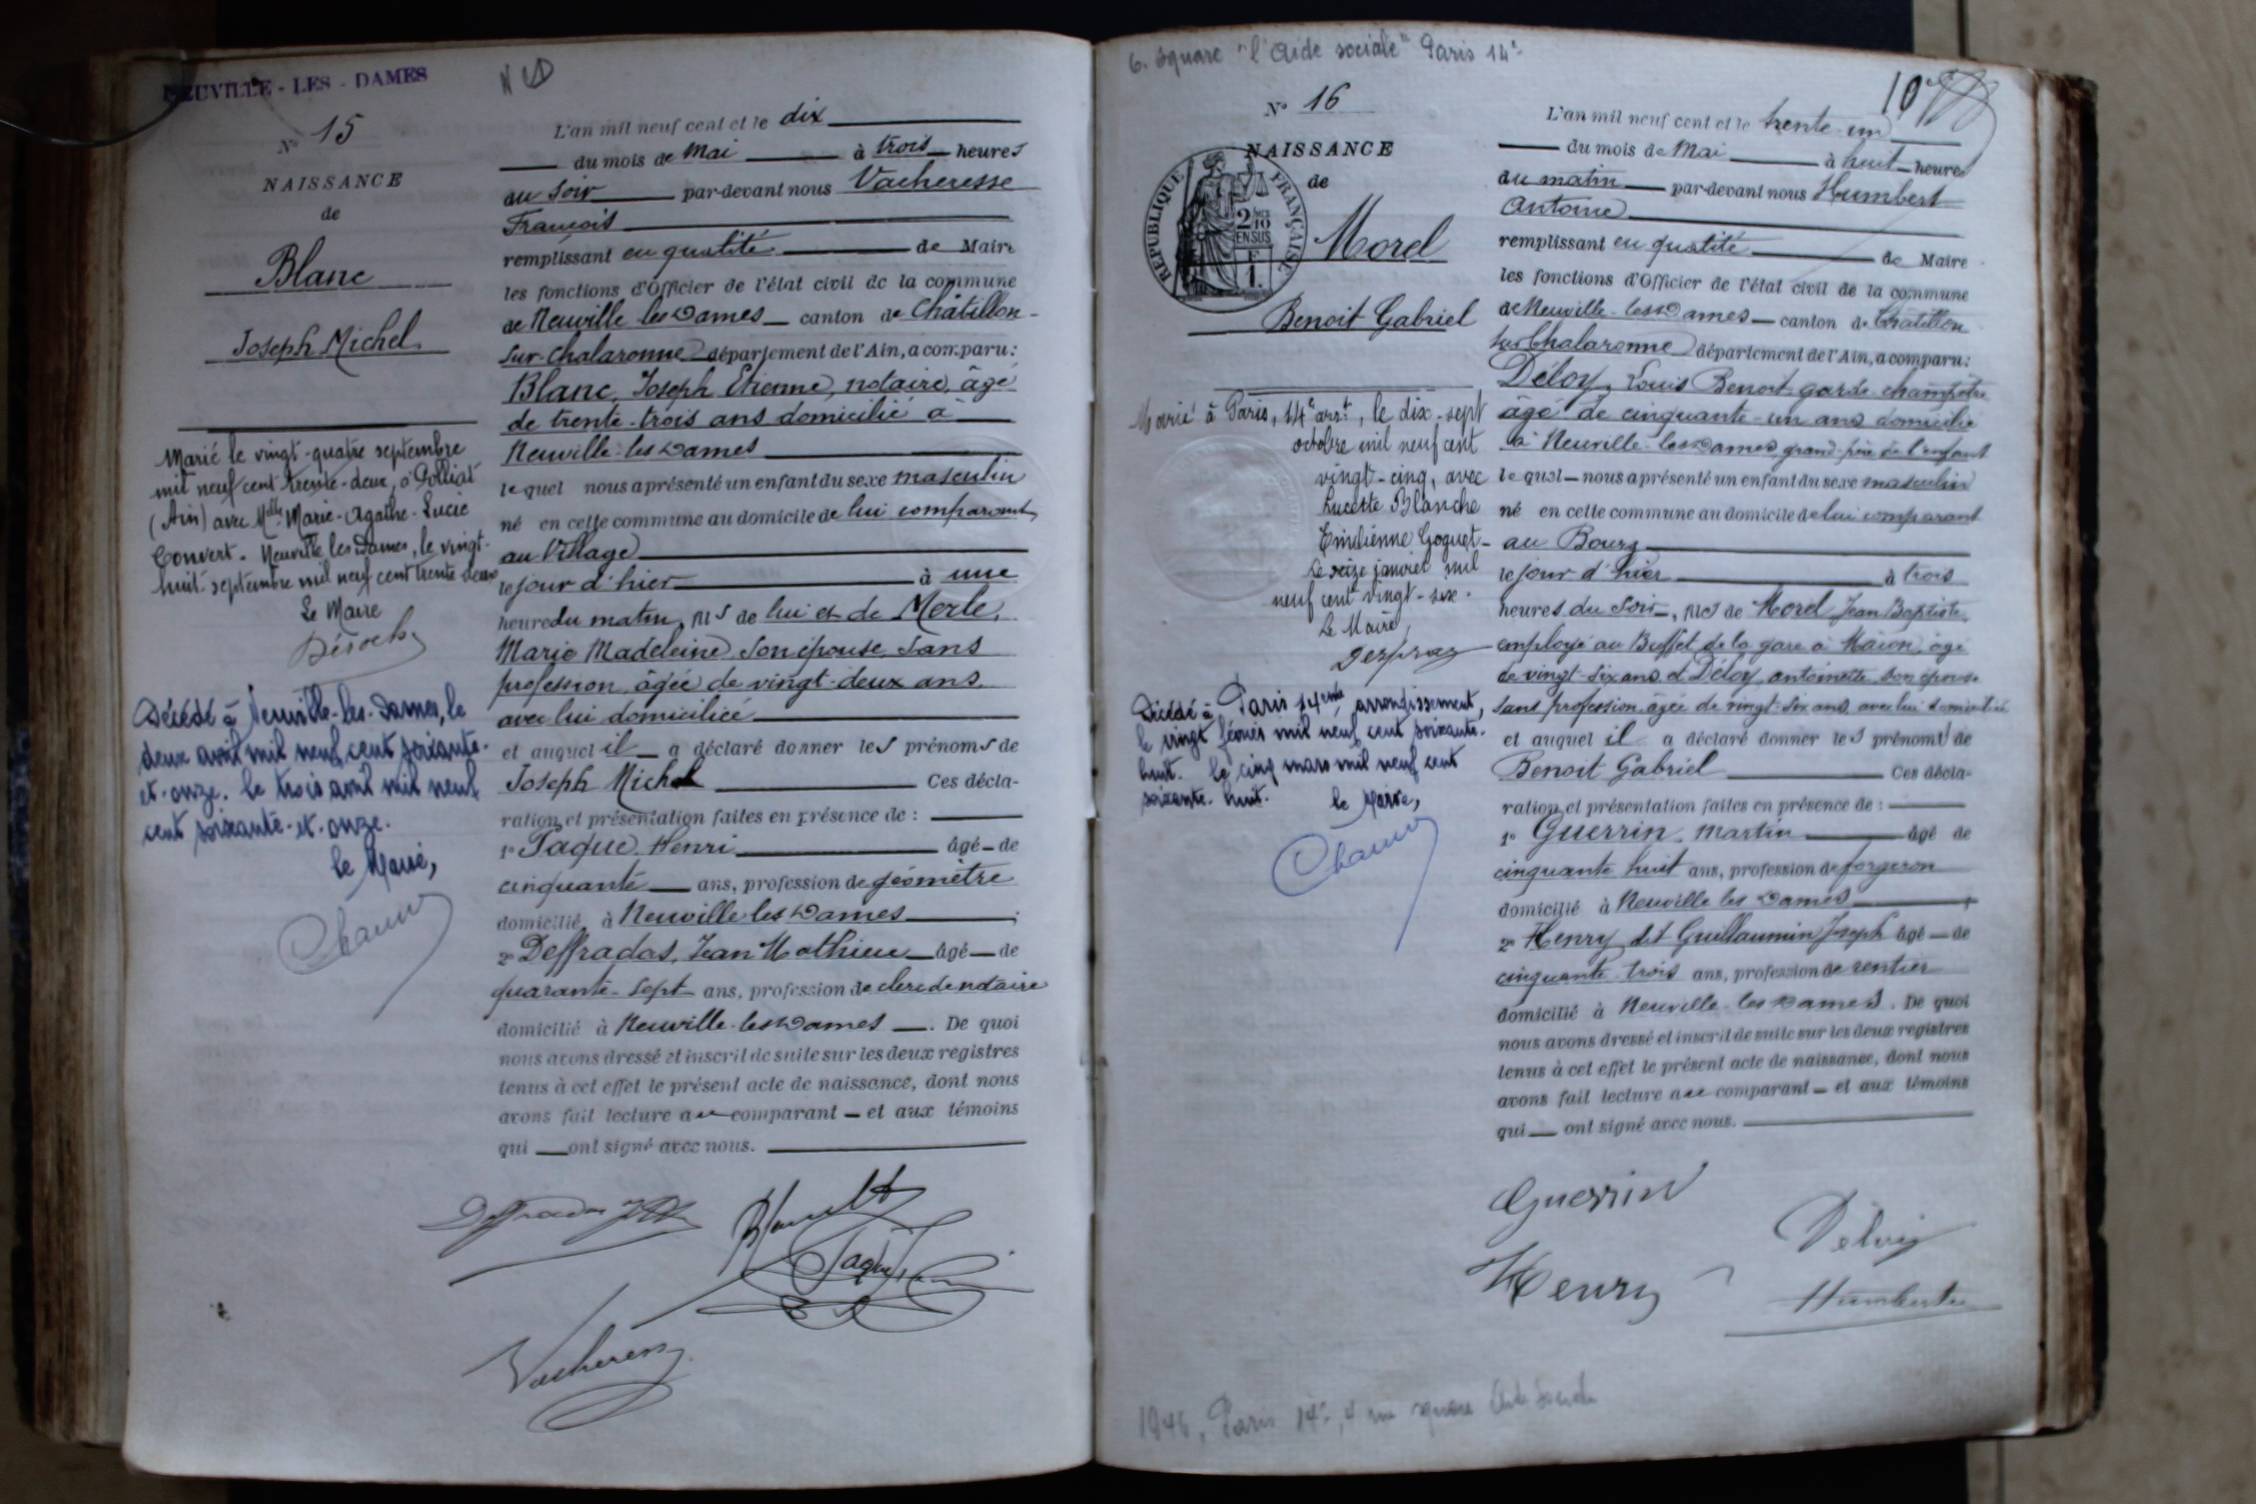 NEUVILLE - LES - DAMES
N° 15
NAISSANCE
de
Blanc
Joseph Michel
Marié le vingt-quatre septembre
mil neuf cent trente-deux, à Polliat
(Ain) avec Melle Marie-Agathe-Lucie
Convert. Neuville les Dames, le vingt-
huit septembre mil neuf cent trente deux
Le Maire
Décédé à Neuville-les-Dames, le
deux avril mil neuf cent soixante-
et-onze. Le trois avril mil neuf
cent soixante-et-onze.
le Maire,
L'an mil neuf cent et le dix
du mois de Mai à trois heures
du soir par-devant nous Vacheresse
François
remplissant en qualité de Maire
les fonctions d'Officier de l'état civil de la commune
de Neuville les Dames canton de Châtillon-
sur-Chalaronne département de l'Ain, a comparu:
Blanc, Joseph Etienne, notaire, âgé
de trente-trois ans domicilié à
Neuville-les-Dames
lequel nous a présenté un enfant du sexe masculin
né en cette commune au domicile de lui comparant
au Village
le jour d'hier à une
heure du matin, fils de lui et de Merle,
Marie Madeleine son épouse, sans
profession, âgée de vingt-deux ans
avec lui domiciliée
et auquel il a déclaré donner les prénoms de
Joseph Michel Ces décla-
ration et présentation faites en présence de :
1° Paque Henri âgé de
cinquante ans, profession de géomètre
domicilié à Neuville les Dames ;
2° Deffradas, Jean Mathieu âgé de
quarante-sept ans, profession de clerc de notaire
domicilié à Neuville-les-Dames . De quoi
nous avons dressé et inscrit de suite sur les deux registres
tenus à cet effet le présent acte de naissance, dont nous
avons fait lecture au comparant et aux témoins
qui ont signé avec nous.
Vacheresse
6. Square "l'Aide sociale" Paris 14e
10
N° 16
NAISSANCE
de
RÉPUBLIQUE FRANÇAISE
Morel
Benoit Gabriel
Marié à Paris, 14e arrt, le dix-sept
octobre mil neuf cent
vingt-cinq, avec
Lucette Blanche
Emilienne Goguet-
Le seize janvier mil
neuf cent vingt-six.
Le Maire,
Décédé à Paris 14eme arrondissement,
le vingt février mil neuf cent soixante-
huit. Le cinq mars mil neuf cent
soixante-huit. le Maire,
L'an mil neuf cent et le trente-un
du mois de Mai à huit heures
du matin par-devant nous Humbert
Antoine
remplissant en qualité de Maire
les fonctions d'Officier de l'état civil de la commune
de Neuville-les-Dames canton de Chatillon
sur Chalaronne département de l'Ain, a comparu:
Déloy, Louis Benoit, garde-champêtre
âgé de cinquante-un ans domicilié
à Neuville-les-Dames, grand-père de l'enfant
lequel nous a présenté un enfant du sexe masculin
né en cette commune au domicile de lui comparant
au Bourg
le jour d'hier à trois
heures du soir, fils de Morel Jean Baptiste,
employé au Buffet de la gare à Macon, âgé
de vingt-six ans et Déloy, antoinette son épouse
sans profession âgée de vingt-six ans, avec lui domiciliée
et auquel il a déclaré donner les prénoms de
Benoit Gabriel Ces décla-
ration et présentation faites en présence de :
1° Guerrin, Martin âgé de
cinquante huit ans, profession de forgeron
domicilié à Neuville les Dames ;
2° Henry dit Guillaumin Joseph âgé de
cinquante-trois ans, profession de rentier
domicilié à Neuville-les-Dames. De quoi
nous avons dressé et inscrit de suite sur les deux registres
tenus à cet effet le présent acte de naissance, dont nous
avons fait lecture au comparant et aux témoins
qui ont signé avec nous.
Guerrin
Déloy
Henry
Humbert
1946, Paris 14e, 4 rue square Aide Sociale